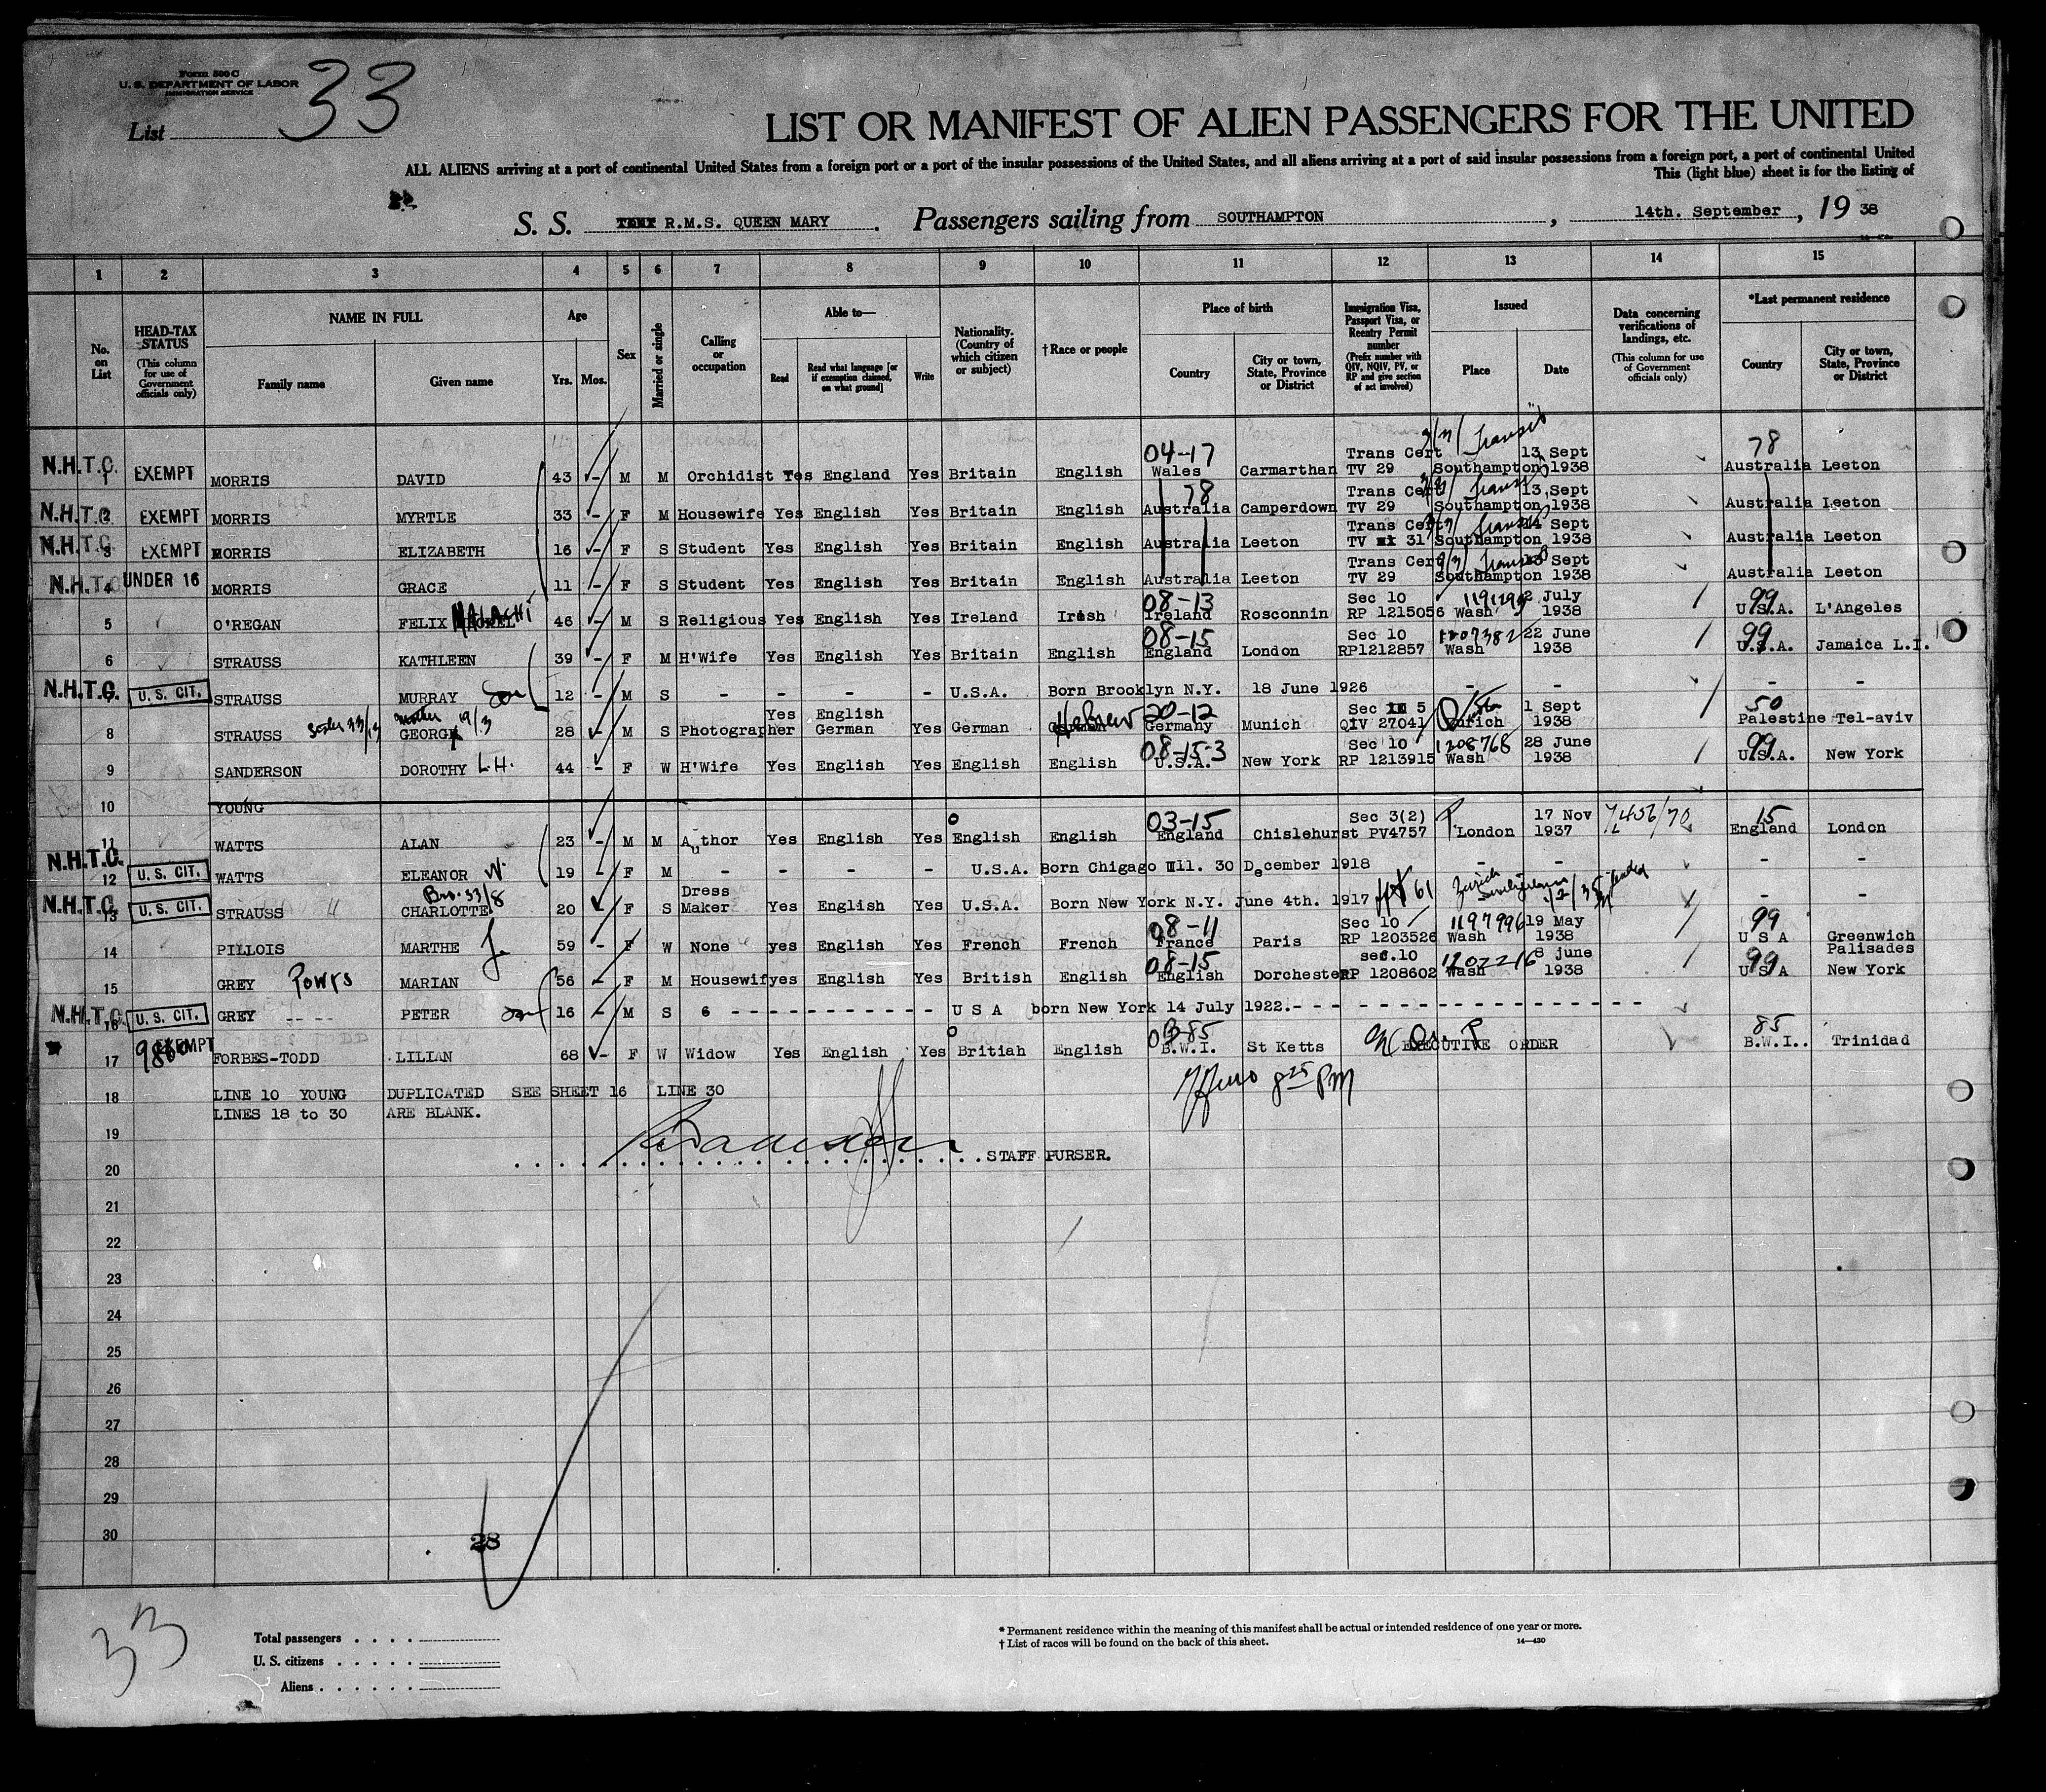 Form 500 C
U. S. DEPARTMENT OF LABOR
IMMIGRATION SERVICE
List 33
LIST OR MANIFEST OF ALIEN PASSENGERS FOR THE UNITED
ALL ALIENS arriving at a port of continental United States from a foreign port or a port of the insular possessions of the United States, and all aliens arriving at a port of said insular possessions from a foreign port, a port of continental United
This (light blue) sheet is for the listing of
S. S. R.M.S. QUEEN MARY . Passengers sailing from SOUTHAMPTON , 14th. September , 19 38
1 2 3 4 5 6 7 8 9 10 11 12 13 14 15
No. on List
HEAD-TAX STATUS (This column for use of Government officials only)
NAME IN FULL Family name Given name
Age Yrs. Mos.
Sex
Married or single
Calling or occupation
Able to— Read Read what language [or if exemption claimed, on what ground] Write
Nationality. (Country of which citizen or subject)
† Race or people
Place of birth Country City or town, State, Province or District
Immigration Visa, Passport Visa, or Reentry Permit number (Prefix number with QIV, NQIV, PV, or RP and give section of act involved)
Issued Place Date
Data concerning verifications of landings, etc. (This column for use of Government officials only)
*Last permanent residence Country City or town, State, Province or District
N.H.T.C. 1 EXEMPT MORRIS DAVID 43 - M M Orchidist Yes England Yes Britain English 04-17 Wales Carmarthan Trans Cert TV 29 Transit Southampton 13 Sept 1938 78 Australia Leeton
N.H.T.C 2 EXEMPT MORRIS MYRTLE 33 - F M Housewife Yes English Yes Britain English 78 Australia Camperdown Trans Cert TV 29 Transit Southampton 13 Sept 1938 Australia Leeton
N.H.T.C. 3 EXEMPT MORRIS ELIZABETH 16 - F S Student Yes English Yes Britain English Australia Leeton Trans Cert TV 31 Transit Southampton 14 Sept 1938 Australia Leeton
N.H.T.C 4 UNDER 16 MORRIS GRACE 11 - F S Student Yes English Yes Britain English Australia Leeton Trans Cert TV 29 Transit Southampton Sept 1938 Australia Leeton
5 O'REGAN FELIX MALACHI 46 - M S Religious Yes English Yes Ireland Irish 08-13 Ireland Rosconnin Sec 10 RP 1215056 Wash 2 July 1938 99 U.S.A. L'Angeles
6 STRAUSS KATHLEEN 39 - F M H'Wife Yes English Yes Britain English 08-15 England London Sec 10 RP1212857 1207382 Wash 22 June 1938 99 U.S.A. Jamaica L.I.
N.H.T.C. 7 U. S. CIT. STRAUSS MURRAY son 12 - M S - - - - U.S.A. Born Brooklyn N.Y. 18 June 1926 - - - -
8 STRAUSS Sister 33/13 GEORG mother 19/3 28 - M S Photographer Yes English German Yes German Hebrew 20-12 Germany Munich Sec 5 QIV 27041 Zurich 1 Sept 1938 50 Palestine Tel-aviv
9 SANDERSON DOROTHY L.H. 44 - F W H'Wife Yes English Yes English English 08-15-3 U.S.A. New York Sec 10 RP 1213915 1208768 Wash 28 June 1938 99 U.S.A. New York
10 YOUNG
11 WATTS ALAN 23 - M M Author Yes English Yes English English 03-15 England Chislehurst Sec 3(2) PV4757 London 17 Nov 1937 15 England London
N.H.T.C. 12 U. S. CIT. WATTS ELEANOR W. 19 - F M - - - - U.S.A. Born Chigago Ill. 30 December 1918 - - - -
N.H.T.C 13 U. S. CIT. STRAUSS CHARLOTTE Bro. 33/8 20 F S Dress Maker Yes English Yes U.S.A. Born New York N.Y. June 4th. 1917 61 Zurich - -
14 PILLOIS MARTHE J. 59 - F W None yes English Yes French French 08-11 France Paris Sec 10 RP 1203526 1197996 Wash 19 May 1938 99 U S A Greenwich Palisades
15 GREY Powys MARIAN 56 - F M Housewif yes English Yes British English 08-15 English Dorchester sec.10 RP 1208602 1202216 Wash 8 june 1938 99 U S A New York
N.H.T.C. 16 U. S. CIT. GREY PETER son 16 - M S 6 - - - - - - - - - - - U S A born New York 14 July 1922.- - - - - - - - - - - - - - - - - - - -
17 EXEMPT FORBES-TODD LILIAN 68 - F W Widow Yes English Yes Britiah English 85 B.W.I. St Ketts EXECUTIVE ORDER 85 B.W.I. Trinidad
18 LINE 10 YOUNG DUPLICATED SEE SHEET 16 LINE 30
LINES 18 to 30 ARE BLANK.
19
20 . . . . . . . . . . STAFF PURSER.
21
22
23
24
25
26
27
28
29
30
28
33
Total passengers . . . .
U. S. citizens . . . . .
Aliens . . . . . .
* Permanent residence within the meaning of this manifest shall be actual or intended residence of one year or more.
† List of races will be found on the back of this sheet.
14—430